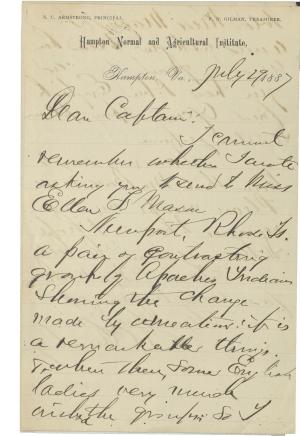 S. C. ARMSTRONG, PRINCIPAL. F. N. GILMAN, TREASURER.
Hampton Normal and Agricultural Institute,
Hampton, Va., July 27 1887
Dear Captain:
I cannot
remember whether I wrote
asking you to send to Miss
Ellen F. Mason
Newport, Rhode Is.
a pair of contrasting
group of Apaches Indians
showing the change
made by education: it is
a remarkable thing.
when there, some English
ladies very much
the groups So I